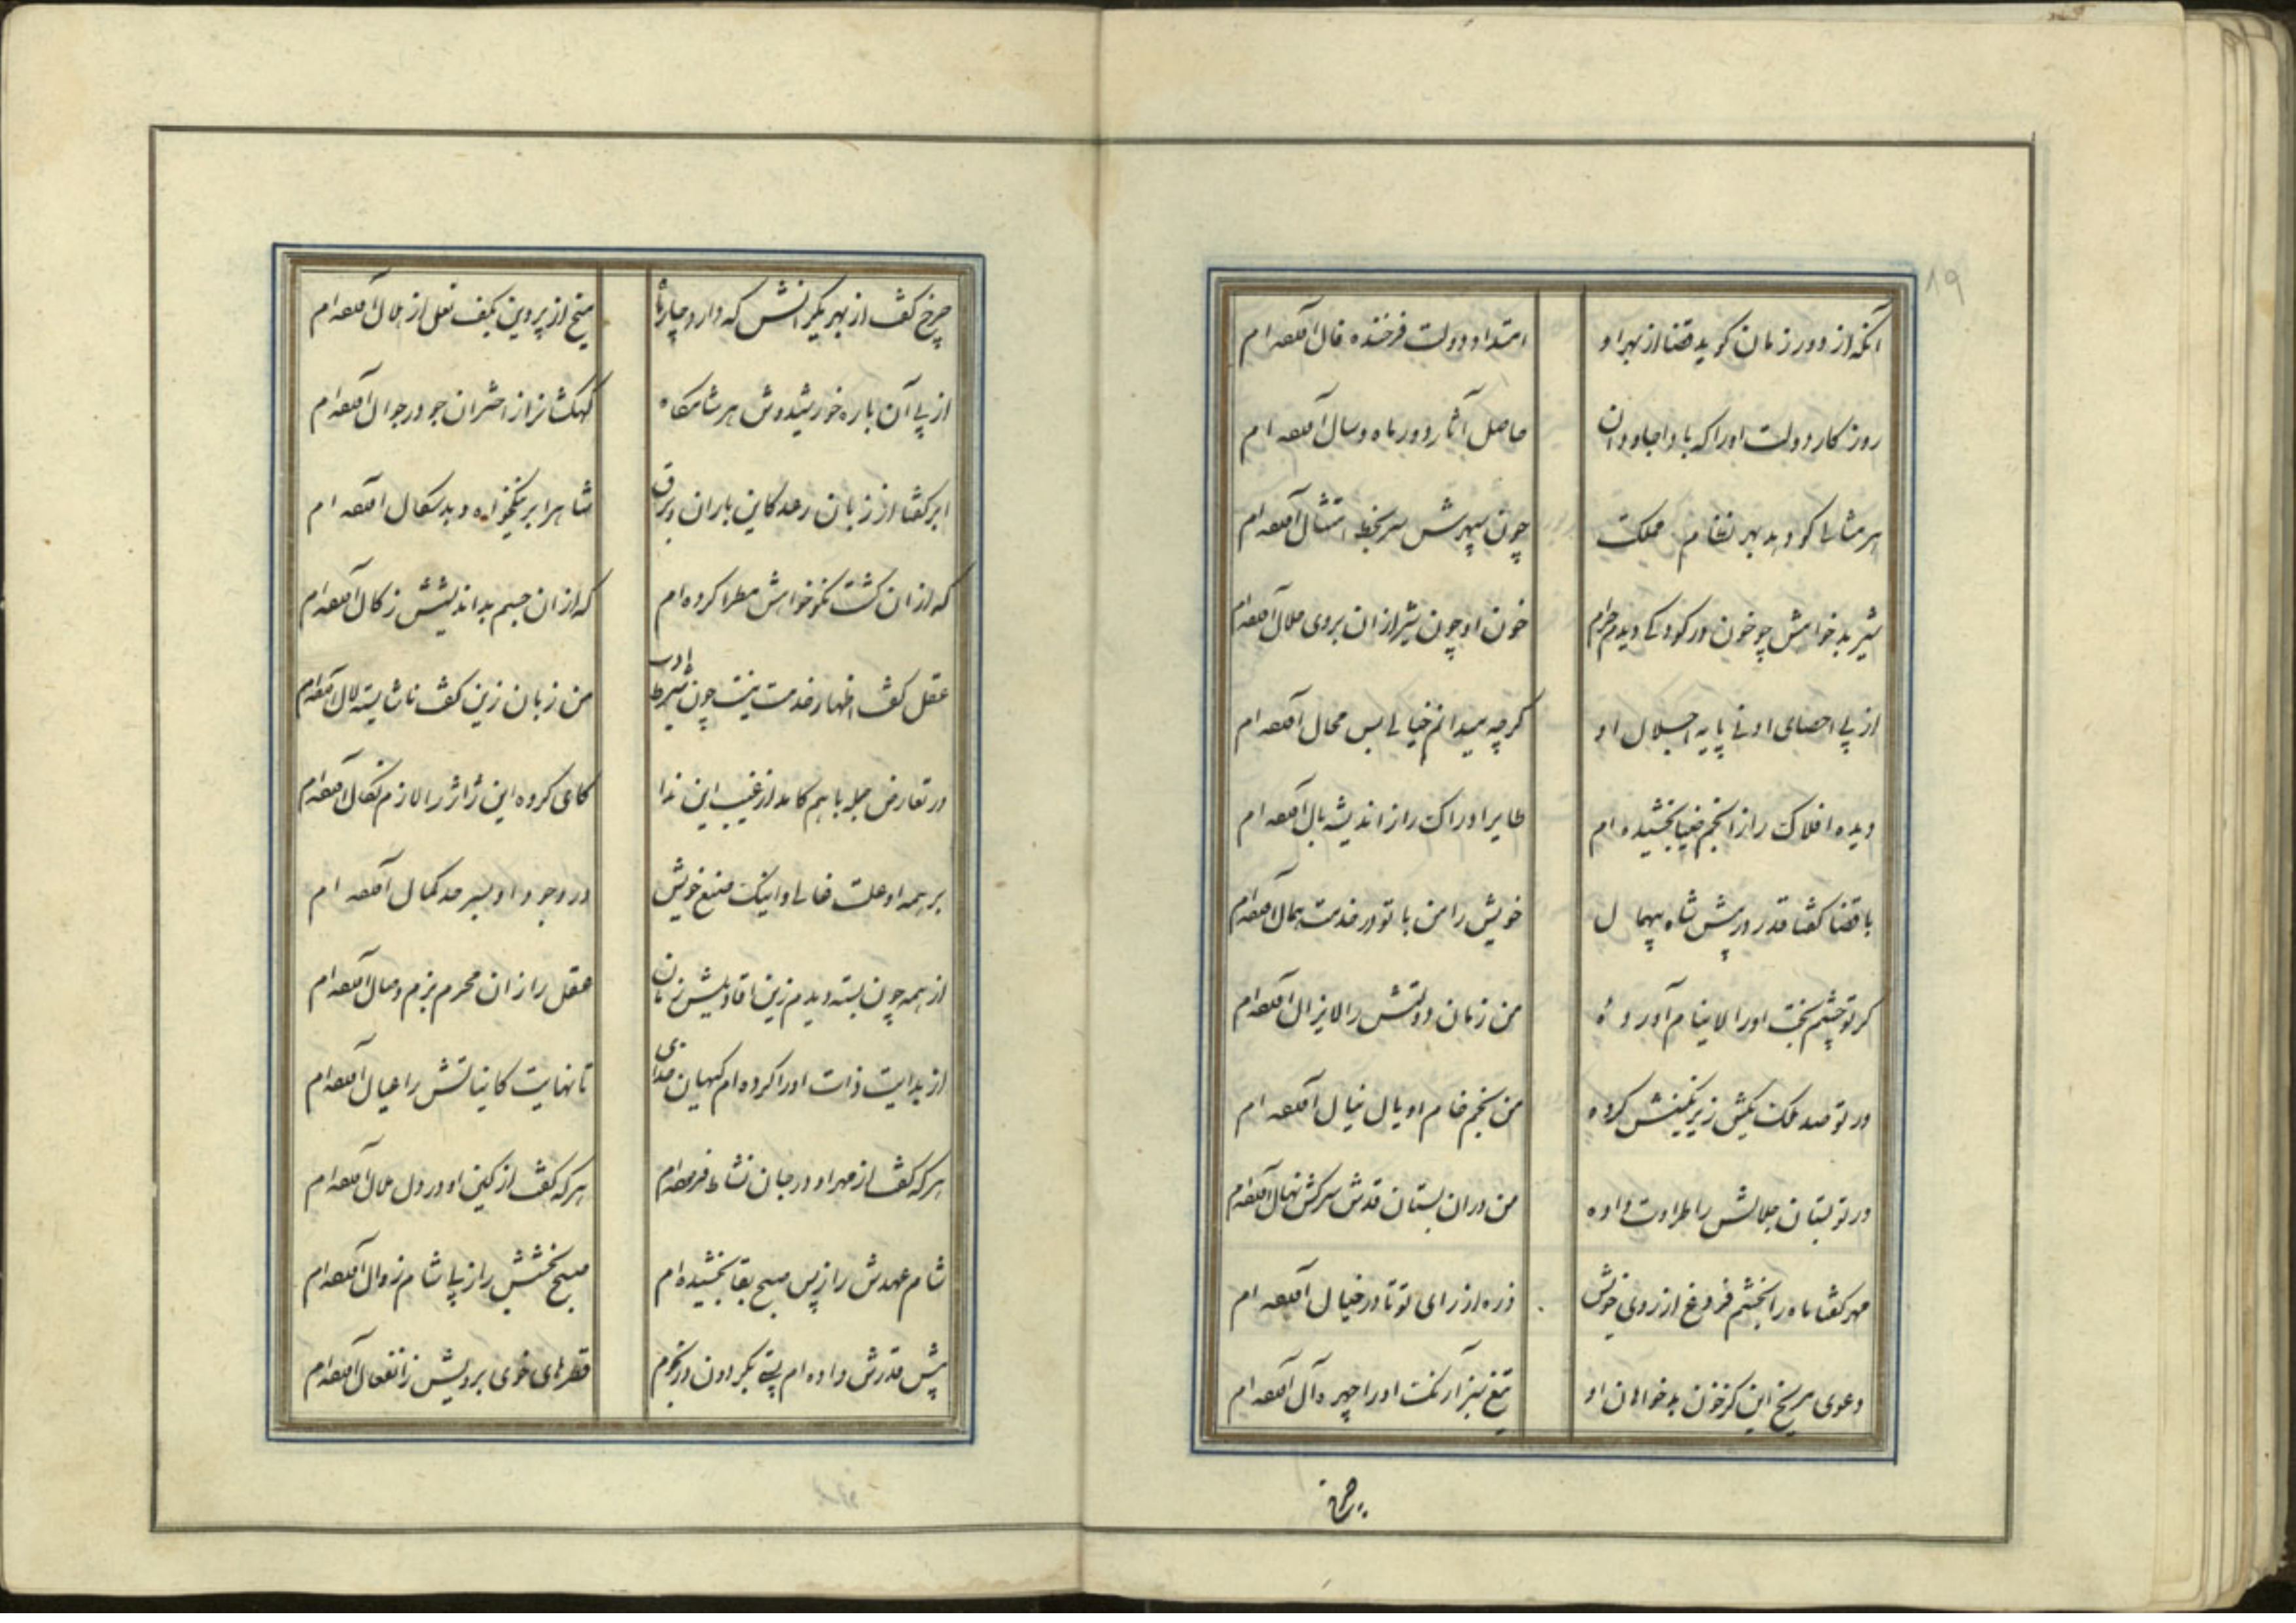 ۱۹
آنکه از دور زمان کوید قضا از بهر او امتداد دولت فرخنده فال آمیخته‌ام
روزکار دولت او را که بادا جاودان حاصل آثار دور ماه و سال آمیخته‌ام
هر مثالی کو دهد بهر نظام مملکت چون سپهرش سر بخط امتثال آمیخته‌ام
شیر بدخواهش چو خون در کودکی دیدم حرام خون او چون شیر از آن بر وی حلال آمیخته‌ام
از پی احصای ادنی پایه اجلال او کرچه میدانم خیالی بس محال آمیخته‌ام
دیده افلاک را از انجم ضیا بخشیده‌ام طایر ادراک را از اندیشه بال آمیخته‌ام
با قضا کفتا قدر در پیش شاه بیهمال خویش را من با تو در خدمت همال آمیخته‌ام
کر تو چشم بخت او را لاینام آورده من زمان دولتش را لایزال آمیخته‌ام
ور تو صد ملکت بکیش زیر نکینش کرده من بخم خام او یال نیال آمیخته‌ام
ور تو بستان جلالش را طراوت داده من در آن بستان قدش سرکش نهال آمیخته‌ام
مهر کفتا ماه را بخشم فروغ از روی خویش ذره از رای تو تا در خیال آمیخته‌ام
دعوی مریخ این کز خون بدخواهان او تیغ سبز ار نکت او را چهره آل آمیخته‌ام
چرخ
چرخ کفت از بهر یکرانش که دارد چارپا میخ از پروین بکف نعل از هلال آمیخته‌ام
از پی آن باره خورشیدوش هر شامکاه کهکشانرا از اختران جو در جوال آمیخته‌ام
ابر کفتا از زبان رعد کاین باران و برق شاه را بر نیکخواه و بدسکال آمیخته‌ام
که از آن کشت نکوخواهش مطرا کرده‌ام که از آن جسم بداندیشش زکال آمیخته‌ام
عقل کفت اظهار خدمت نیست چون شرط ادب من زبان زین کفت ناشایسته لال آمیخته‌ام
در تعارض جمله با هم کامد از غیب این ندا کای کروه این ژاژ را لازم نکال آمیخته‌ام
بر همه او علت غائی و اینک صنع خویش در وجود او بسر حد کمال آمیخته‌ام
از همه چون بسته دیدم زین افادیلش زبان عقل را زان محرم بزم وصال آمیخته‌ام
از بدایت ذات او را کرده‌ام کیهان خدای تا نهایت کایناتش را عیال آمیخته‌ام
هر که کفت از مهر او در جان نشاط فرصه‌ام هر که کفت از کین او در دل ملال آمیخته‌ام
شام عهدش را ز پس صبح بقا بخشیده‌ام صبح بخشش را ز پی شام زوال آمیخته‌ام
پیش قدرش داده‌ام پستی بکردون وز نجوم قطرهای خوی برویش ز انفعال آمیخته‌ام